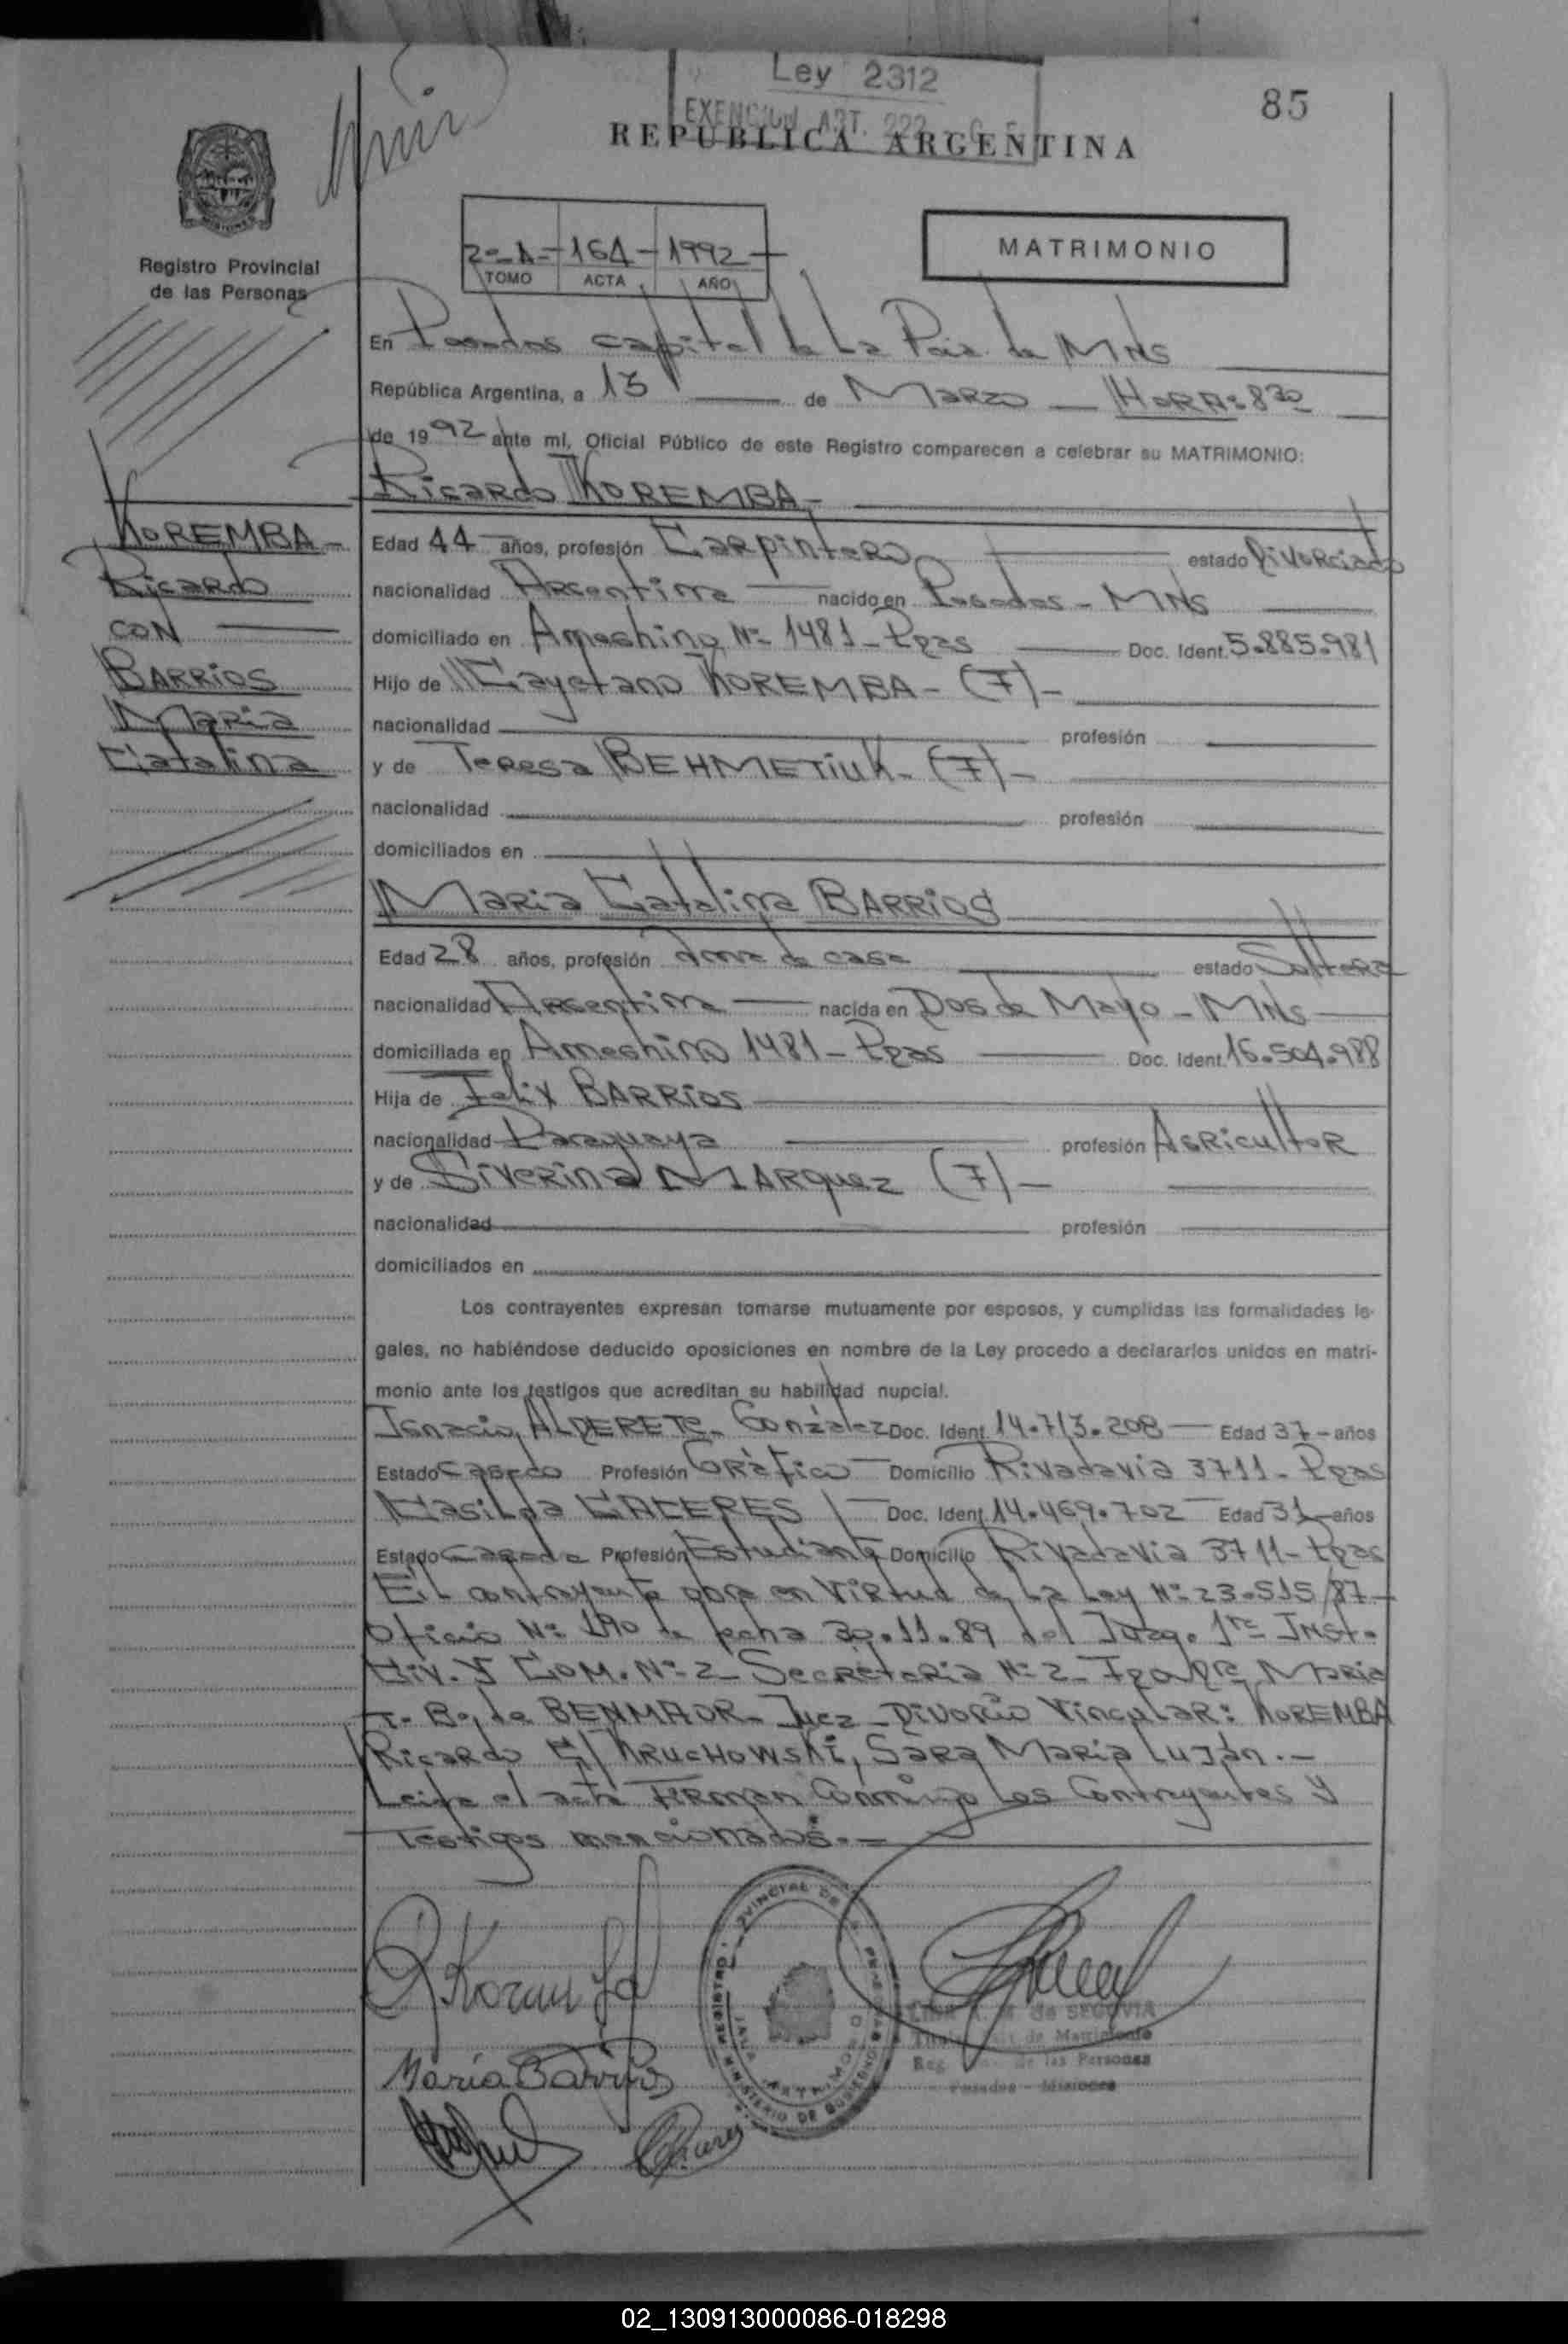 Ley 2312
EXENCION ART. 222
85
REPUBLICA ARGENTINA
2º-A- 164 - 1992
TOMO ACTA AÑO
MATRIMONIO
Registro Provincial
de las Personas
En Posadas capital de La Pcia. de MNS
República Argentina, a 13 de Marzo HORA: 8 30
de 1992 ante mí, Oficial Público de este Registro comparecen a celebrar su MATRIMONIO:
Ricardo KOREMBA
KOREMBA-
Ricardo
CON
BARRIOS
Maria
Catalina
Edad 44 años, profesión Carpintero estado Divorciado
nacionalidad Argentina nacido en Posadas - MNS
domiciliado en Ameghino Nº 1481 - Pdas Doc. Ident. 5.885.981
Hijo de Cayetano KOREMBA - (F) -
nacionalidad profesión
y de Teresa BEHMETIUK - (F) -
nacionalidad profesión
domiciliados en
Maria Catalina BARRIOS
Edad 28 años, profesión Ama de casa estado Soltera
nacionalidad Argentina nacida en Dos de Mayo - MNS
domiciliada en Ameghino 1481 - Pdas Doc. Ident. 16.504.988
Hija de Felix BARRIOS
nacionalidad Paraguaya profesión Agricultor
y de Siverina MARquez (F) -
nacionalidad profesión
domiciliados en
Los contrayentes expresan tomarse mutuamente por esposos, y cumplidas las formalidades le-
gales, no habiéndose deducido oposiciones en nombre de la Ley procedo a declararlos unidos en matri-
monio ante los testigos que acreditan su habilidad nupcial.
Ignacio ALDERETE González Doc. Ident. 14.713.208 Edad 37 - años
Estado Casado Profesión Gráfico Domicilio Rivadavia 3711 - Pdas
Casilda CACERES Doc. Ident. 14.469.702 Edad 31 años
Estado Casada Profesión Estudiante Domicilio Rivadavia 3711 - Pdas
El contrayente en virtud de La Ley Nº 23.515/87 -
Oficio Nº 190 de fecha 30.11.89 del Juzg. 1ra Inst.
Civ. y Com. Nº 2 - Secretaria Nº 2 - Maria
T. B. de BENMAOR - Juez - Divorcio Vincular: KOREMBA
Ricardo C/ KRUCHOWSKI, Sara María Luján. -
Leida el acta Firman Conmigo Los Contrayentes y
Testigos mencionados. -
María Barrios
de SEGOVIA
de Matrimonio
Reg. de las Personas
Posadas - Misiones
02_130913000086-018298